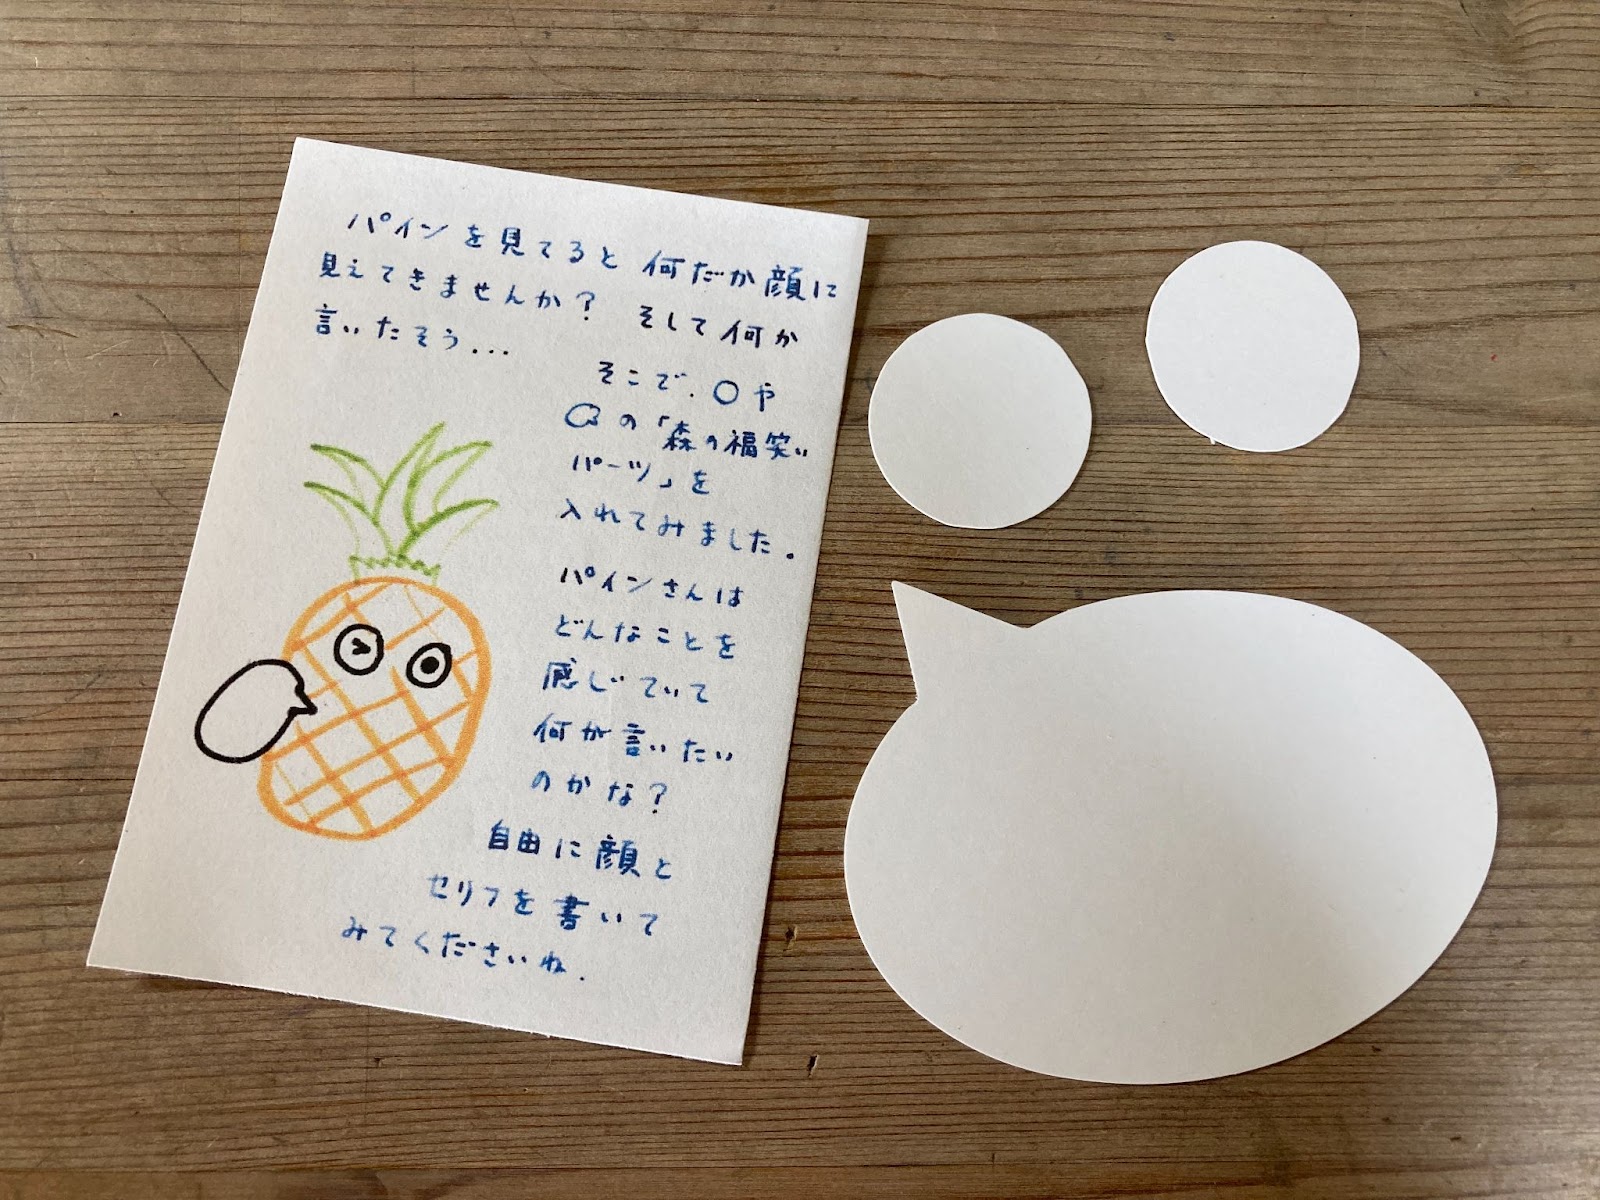 パインを見てると何だか顔に
見えてきませんか？ そして何か
言いたそう...
そこで、○や
の「森の福笑い
パーツ」を
入れてみました。
パインさんは
どんなことを
感じていて
何が言いたい
のかな？
自由に顔と
セリフを書いて
みてくださいね.